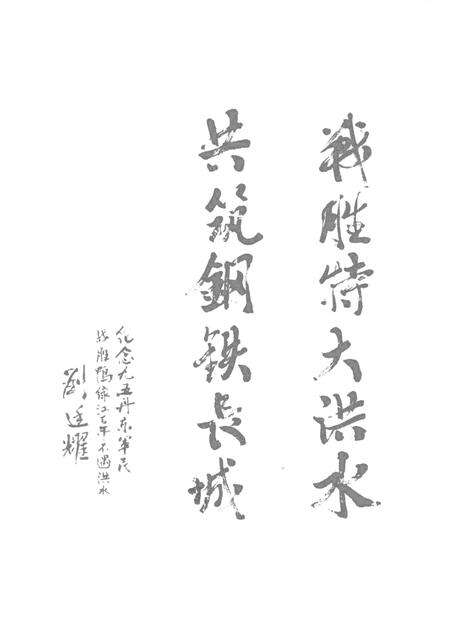 戰胜特大洪水
共筑鋼鉄長城
纪念九五丹东军民
战胜鸭绿江百年不遇洪水
劉廷耀